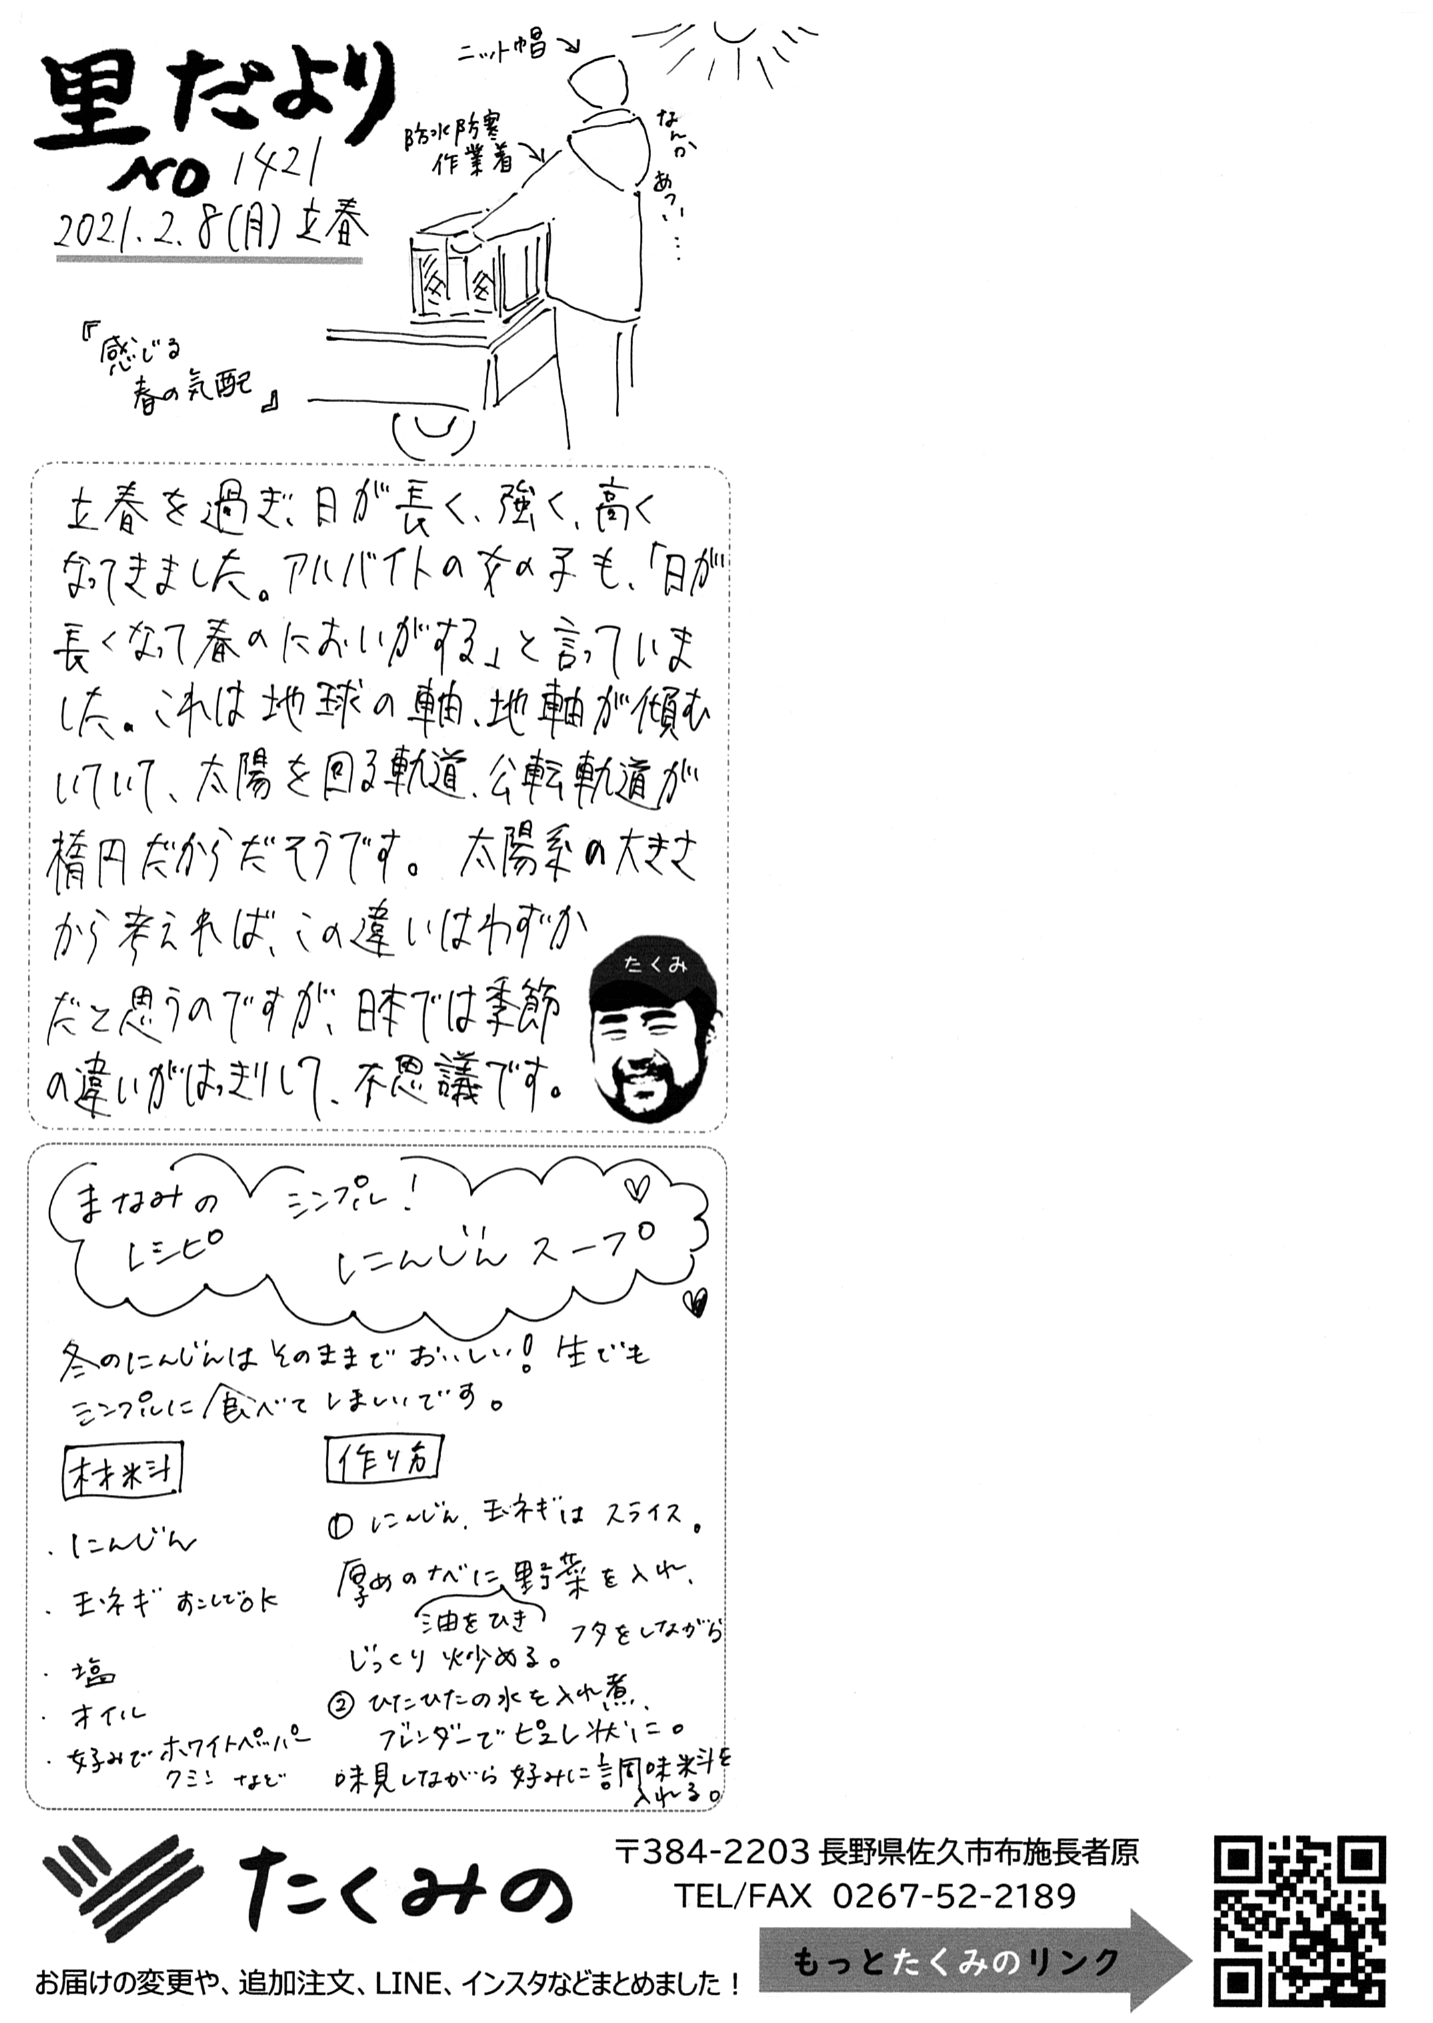 里だより
NO 1421
2021.2.8(月)立春
『感じる
春の気配』
ニット帽
防水防寒
作業着
なんか
あつい…
立春を過ぎ、日が長く、強く、高く
なってきました。アルバイトの女の子も、「日が
長くなって春のにおいがする」と言っていま
した。これは地球の軸、地軸が傾む
いていて、太陽を回る軌道、公転軌道が
楕円だからだそうです。太陽系の大きさ
から考えれば、この違いはわずか
だと思うのですが、日本では季節
の違いがはっきりして、不思議です。
たくみ
まなみの
レシピ
シンプル!
にんじんスープ
冬のにんじんはそのままでおいしい!生でも
シンプルに食べてほしいです。
材料
・にんじん
・玉ネギ 少しでOK
・塩
・オイル
・好みでホワイトペッパー
クミンなど
作り方
① にんじん、玉ネギはスライス。
厚めのナベに野菜を入れ、
油をひき
フタをしながら
じっくり炒める。
② ひたひたの水を入れ煮、
ブレンダーでピュレ状に。
味見しながら好みに調味料を
入れる。
たくみの
〒384-2203 長野県佐久市布施長者原
TEL/FAX 0267-52-2189
もっとたくみのリンク
お届けの変更や、追加注文、LINE、インスタなどまとめました!